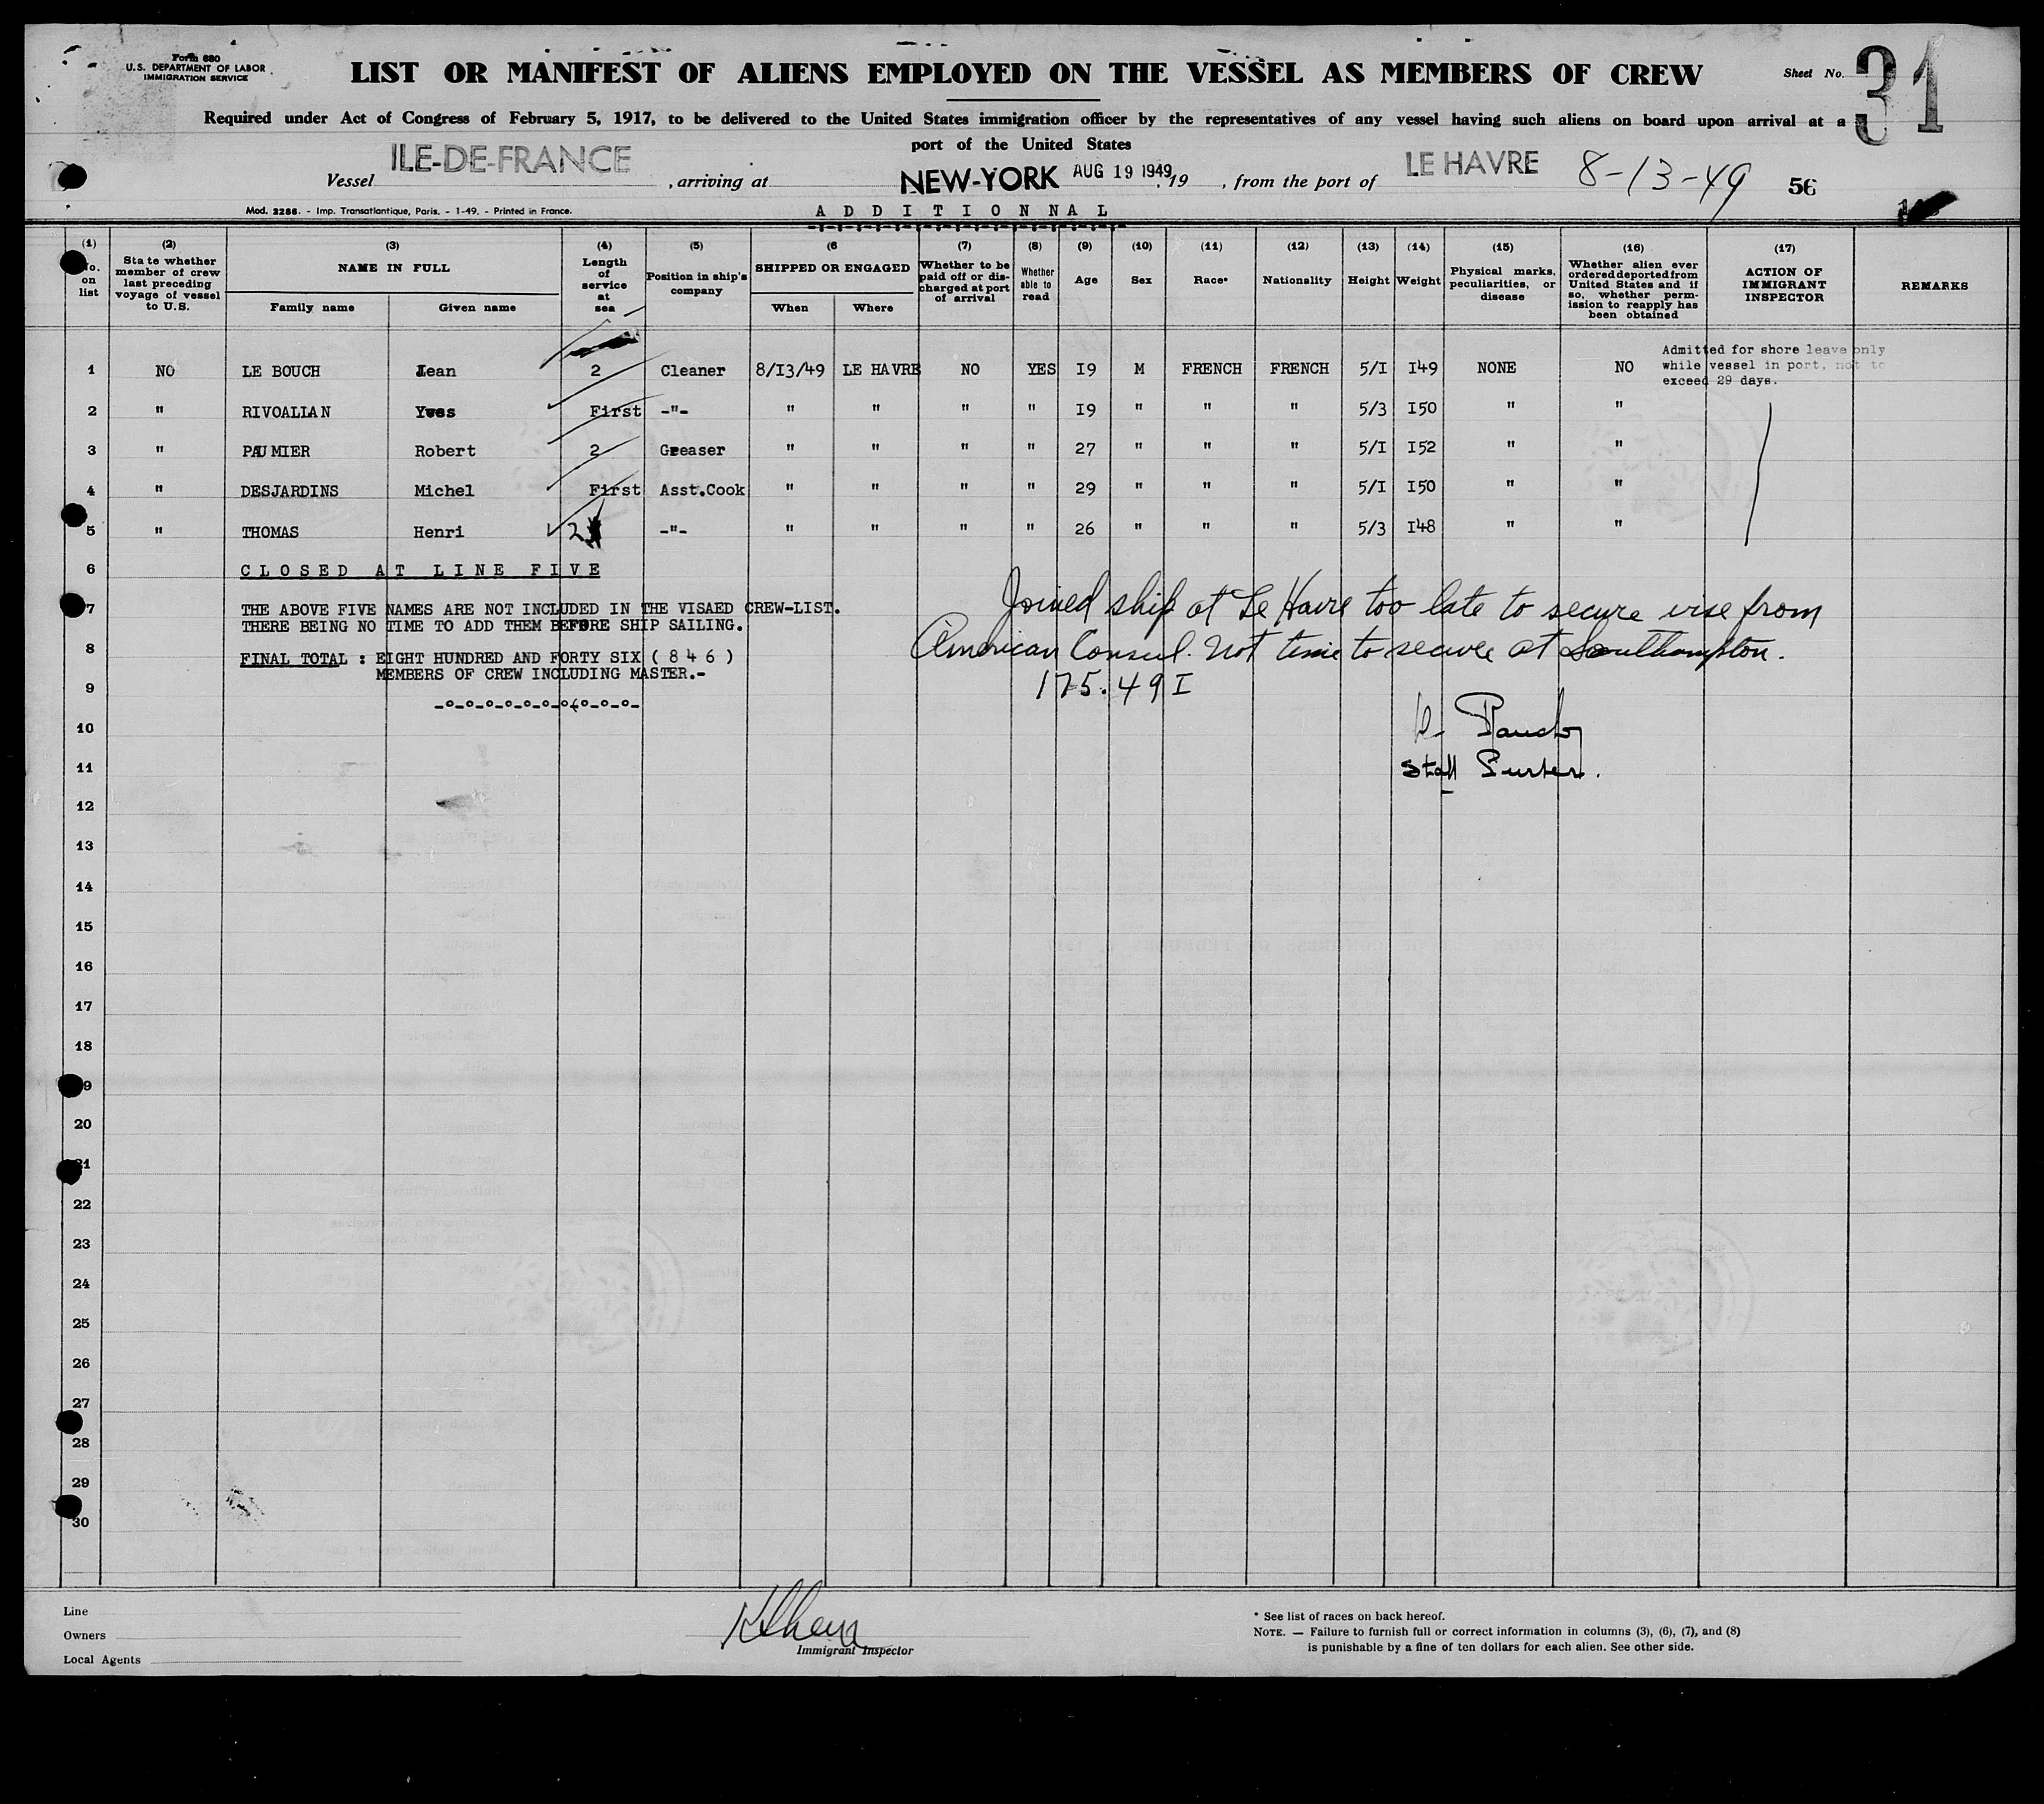 Form 680
U.S. DEPARTMENT OF LABOR
IMMIGRATION SERVICE
LIST OR MANIFEST OF ALIENS EMPLOYED ON THE VESSEL AS MEMBERS OF CREW
Sheet No. 31
Required under Act of Congress of February 5, 1917, to be delivered to the United States immigration officer by the representatives of any vessel having such aliens on board upon arrival at a
port of the United States
Vessel ILE-DE-FRANCE, arriving at NEW-YORK AUG 19 1949, 19 , from the port of LE HAVRE 8-13-49 56
Mod. 2286. - Imp. Transatlantique, Paris. - 1-49. - Printed in France.
ADDITIONNAL
(1) No. on list
(2) State whether member of crew last preceding voyage of vessel to U.S.
(3) NAME IN FULL Family name Given name
(4) Length of service at sea
(5) Position in ship's company
(6 SHIPPED OR ENGAGED When Where
(7) Whether to be paid off or discharged at port of arrival
(8) Whether able to read
(9) Age
(10) Sex
(11) Race*
(12) Nationality
(13) Height
(14) Weight
(15) Physical marks, peculiarities, or disease
(16) Whether alien ever ordered deported from United States and if so, whether permission to reapply has been obtained
(17) ACTION OF IMMIGRANT INSPECTOR
REMARKS
1 NO LE BOUCH Jean 2 Cleaner 8/I3/49 LE HAVRE NO YES I9 M FRENCH FRENCH 5/I I49 NONE NO
Admitted for shore leave only
while vessel in port, not to
exceed 29 days.
2 " RIVOALLAN Yves First -"- " " " " I9 " " " 5/3 I50 " "
3 " PAUMIER Robert 2 Greaser " " " " 27 " " " 5/I I52 " "
4 " DESJARDINS Michel First Asst.Cook " " " " 29 " " " 5/I I50 " "
5 " THOMAS Henri 2 -"- " " " " 26 " " " 5/3 I48 " "
6 CLOSED AT LINE FIVE
7 THE ABOVE FIVE NAMES ARE NOT INCLUDED IN THE VISAED CREW-LIST.
THERE BEING NO TIME TO ADD THEM BEFORE SHIP SAILING.
Joined ship at Le Havre too late to secure vise from
American Consul. Not time to secure at Southampton.
175.49I
8 FINAL TOTAL : EIGHT HUNDRED AND FORTY SIX ( 8 4 6 )
MEMBERS OF CREW INCLUDING MASTER.-
9
-°-°-°-°-°-°-°-°-°-°-
10
11
Staff Purser.
12
13
14
15
16
17
18
19
20
21
22
23
24
25
26
27
28
29
30
Line
Owners
Local Agents
Immigrant Inspector
* See list of races on back hereof.
NOTE. — Failure to furnish full or correct information in columns (3), (6), (7), and (8)
is punishable by a fine of ten dollars for each alien. See other side.